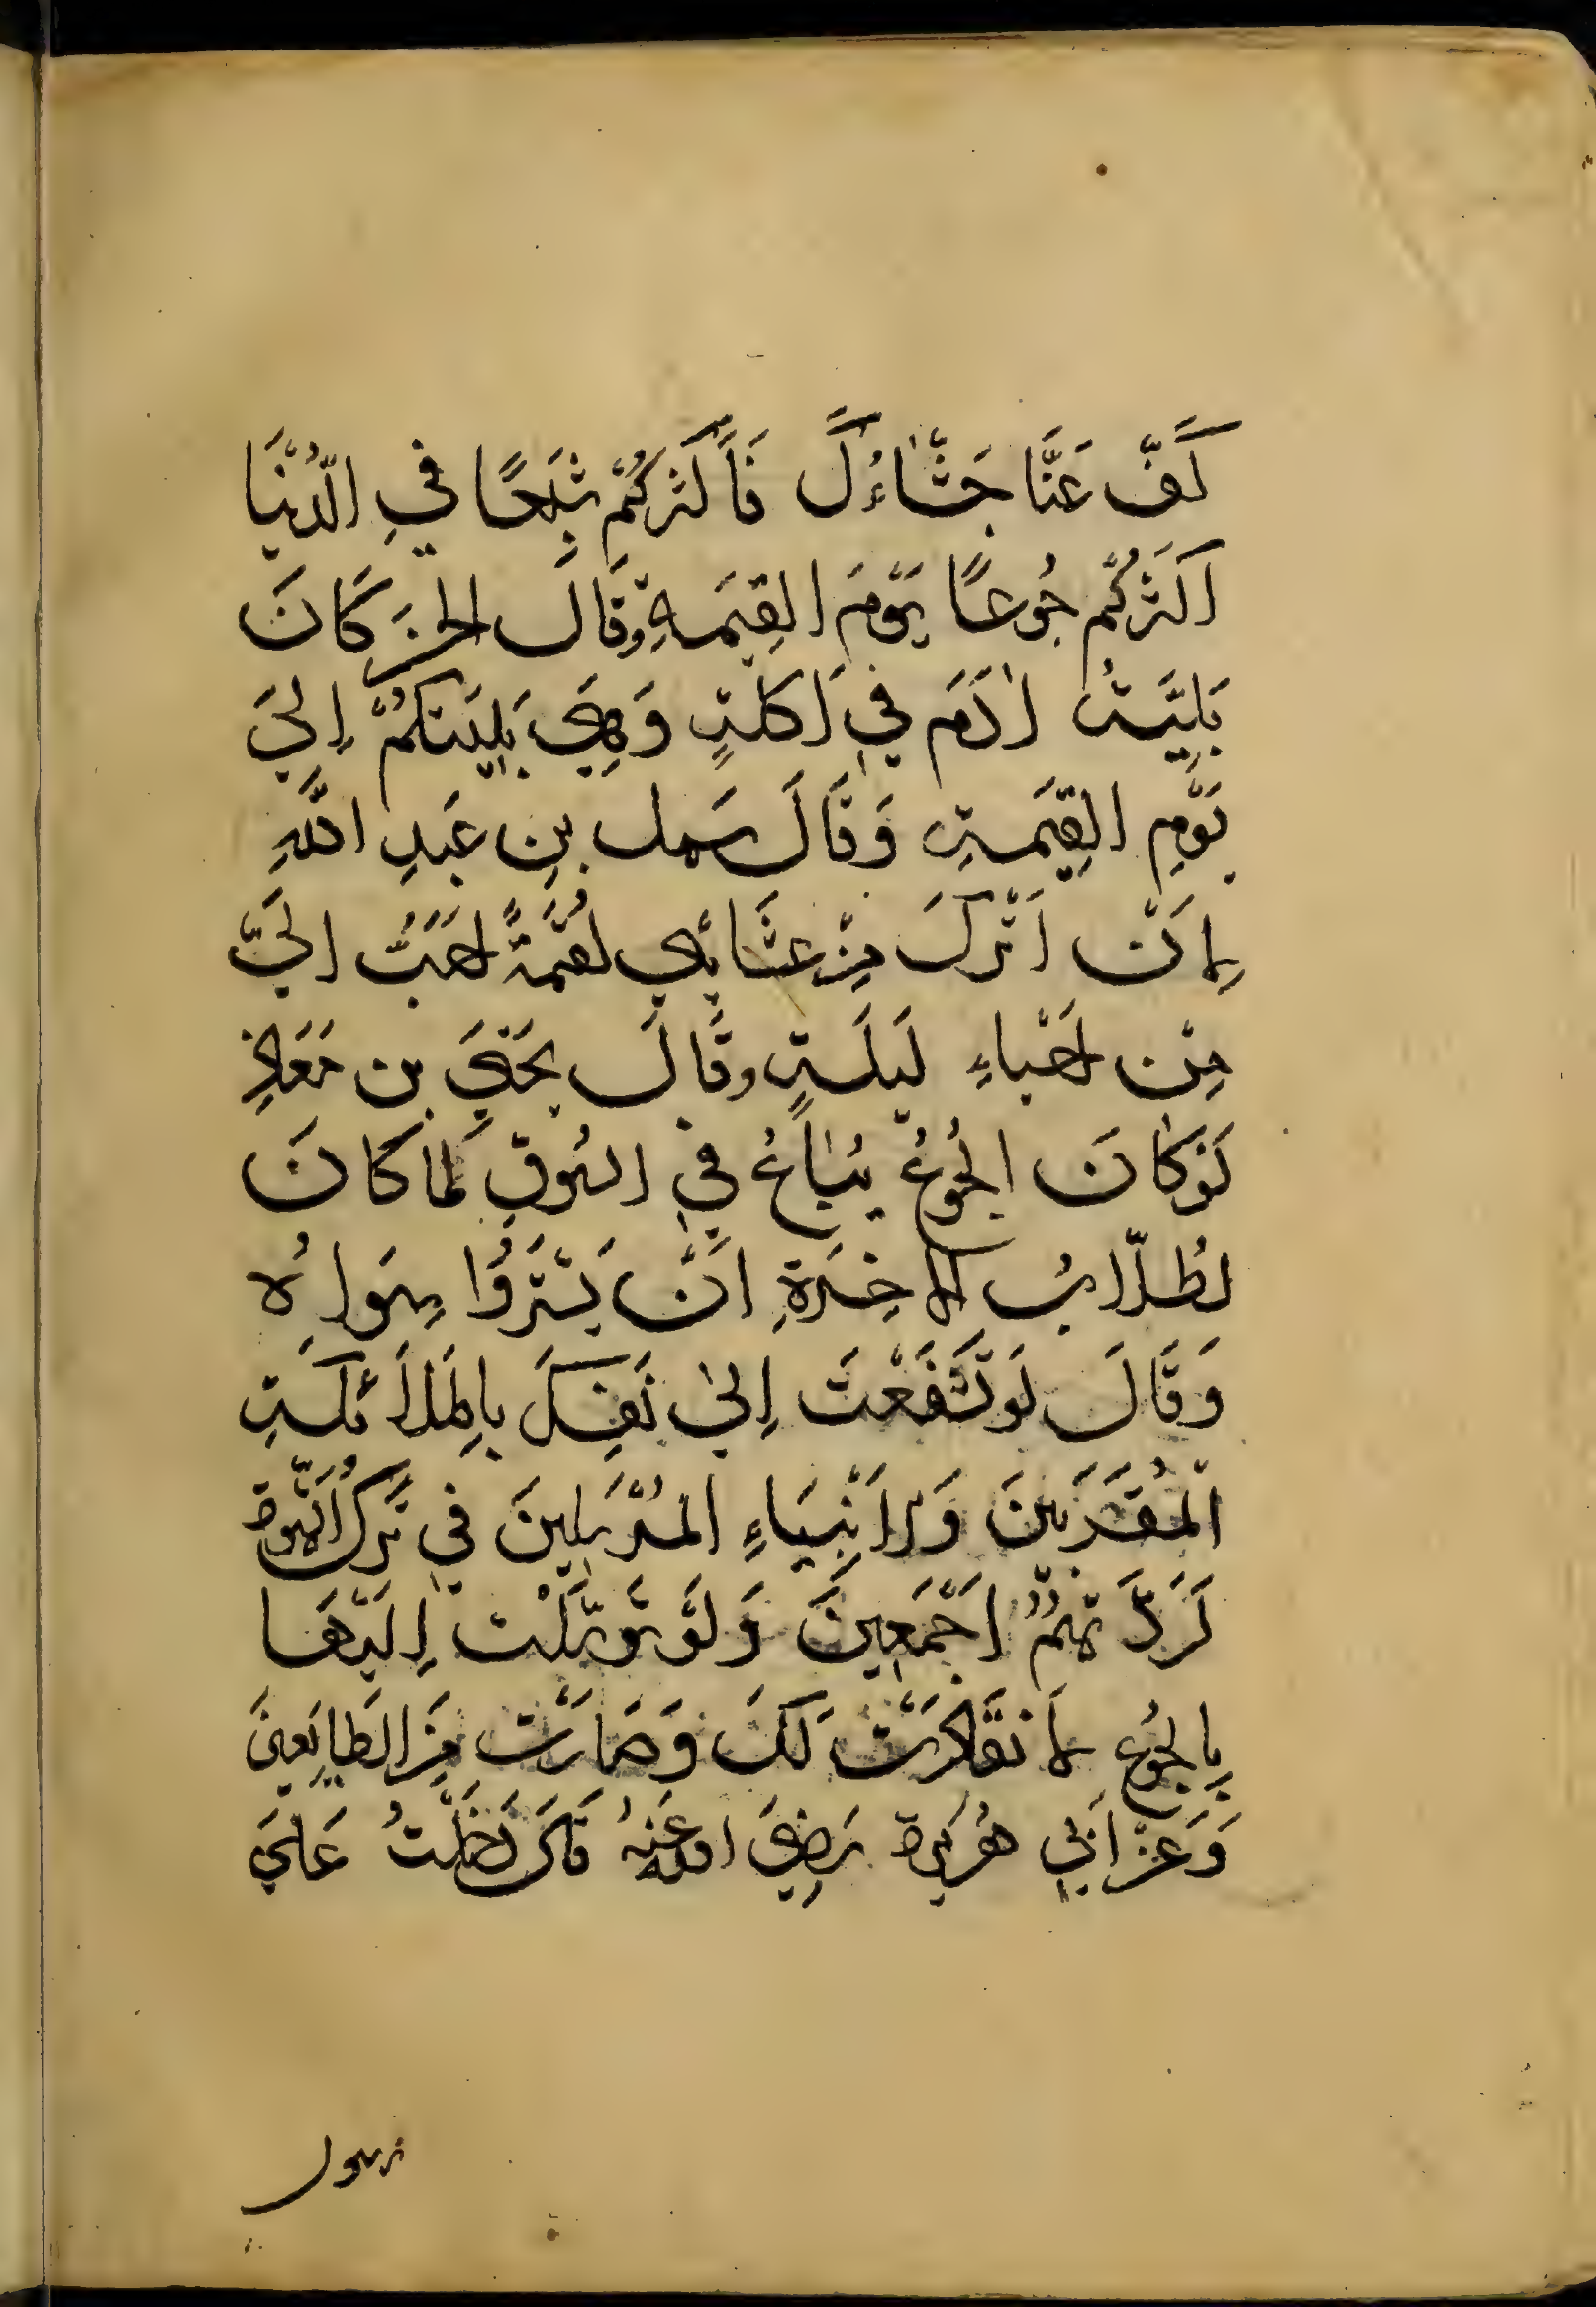 كَفِّ عَنَّا جَشَّاءُكَ فَأَكثَركُمْ شِبَعًا فِي الدُّنْيَا
اَكثَركُمْ جُوعًا يَوْمَ القِيَمَةِ وَقَالَ الحسَن كَانَ
بَلِيَّتُ اٰدَمَ فِي اَكلَتٍ وَهِيَ بَلِيَتكمُْ اِلَيَ
يَوْمِ القِيَمَتِ وَقَالَ سَهل بنِ عَبدِ اللّهِ
لِاَنْ اَتْركَ مِنْ عَشَائِي لُقمَةً اَحَبُّ اِلَيَّ
مِنْ اَحْيَاءِ لَيلَتٍ وقَالَ يَحيَيَ بن مَعَاذٍ
لَوكَانَ الجُوعُ يُبَاعُ فِي السُوقِ لَمَا كَانَ
لطُلّابُ الاٰخِرَةِ اَنْ يَشْتَرُوا سِوَاهُ
وَقَالَ لَوتَشَفَعْتَ اِلىٰ نَفسِكَ بِالمَلَائكَتِ
المُقَرَبِينَ وَالاَنْبِيَاءِ المُرْسَلِينَ فِي تَركِ الشَهْوة
لَرَدَّتهُمْ اَجْمَعِينَ وَلَوْ تَوسَّلْتَ اِلَيْهَا
بِالجُوعِ لَانقَادَتْ لَكَ وَصَارَتْ مِنَ الطَايِعِينَ
وَعَنْ اَبِي هُرَيرة رَضِيَ الله عَنهُ قَالَ دَخَلْتُ عَلَيَ
رسول